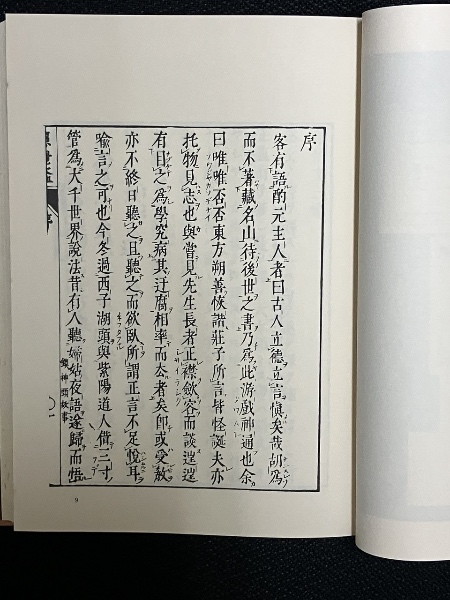 序
客有語酌元主人者曰古人立德立言愼矣哉胡爲
而不著藏名山待後世之書乃爲此游戲神通也余
曰唯唯否否東方朔善恢諧莊子所言皆怪誕夫亦
托物見志也與嘗見先生長者正襟斂容而談
有目之爲學究病其迂腐相率而去者矣即或受敎
亦不終日聽之且聽之而欲臥所謂正言不足悅耳
喩言之可也今冬過西子湖頭與紫陽道人借三寸
管爲大千世界說法昔有人聽婦姑夜語遂歸而悟
序
9